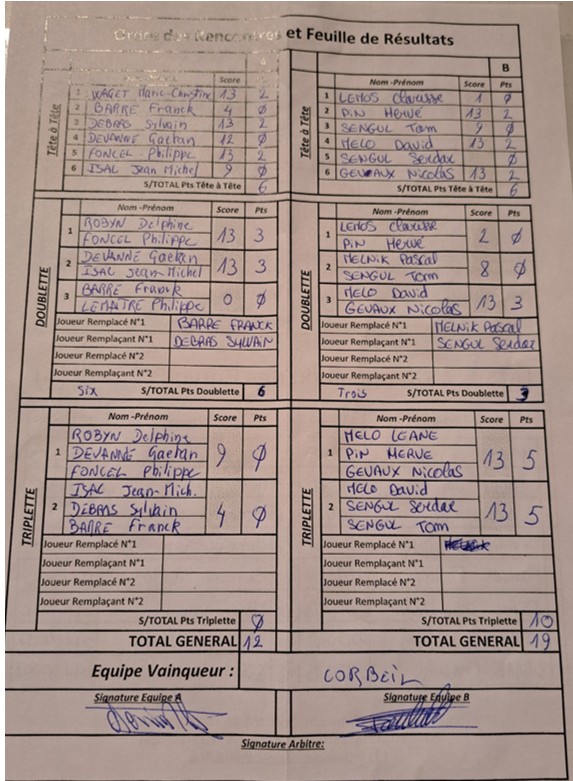 Ordre des Rencontres et Feuille de Résultats
A
Score
1 WAGET Marie-Christine 13 2
2 BARRE Franck 4 0
3 DEBRAS Sylvain 13 2
4 DEVANNE Gaetan 12 0
5 FONCEL Philippe 13 2
6 ISAL Jean Michel 9 0
S/TOTAL Pts Tête à Tête 6
Tête à Tête
B
Nom -Prénom Score Pts
1 LEMOS Clavasse 1 0
2 PIN Hervé 13 2
3 SENGUL Tom 9 0
4 MELO David 13 2
5 SENGUL Serdar 0
6 GEVAUX Nicolas 13 2
S/TOTAL Pts Tête à Tête 6
Tête à Tête
DOUBLETTE
Nom -Prénom Score Pts
1 ROBYN Delphine
FONCEL Philippe 13 3
2 DEVANNE Gaetan
ISAL Jean-Michel 13 3
3 BARRE Franck
LEMAITRE Philippe 0 0
Joueur Remplacé N°1 BARRE FRANCK
Joueur Remplaçant N°1 DEBRAS SYLVAIN
Joueur Remplacé N°2
Joueur Remplaçant N°2
Six S/TOTAL Pts Doublette 6
DOUBLETTE
Nom -Prénom Score Pts
1 LEMOS Clavasse
PIN Hervé 2 0
2 MELNIK Pascal
SENGUL Tom 8 0
3 MELO David
GEVAUX Nicolas 13 3
Joueur Remplacé N°1 MELNIK Pascal
Joueur Remplaçant N°1 SENGUL Serdar
Joueur Remplacé N°2
Joueur Remplaçant N°2
Trois S/TOTAL Pts Doublette 3
TRIPLETTE
Nom -Prénom Score Pts
1 ROBYN Delphine
DEVANNE Gaetan 9 0
FONCEL Philippe
2 ISAL Jean-Mich.
DEBRAS Sylvain 4 0
BARRE Franck
Joueur Remplacé N°1
Joueur Remplaçant N°1
Joueur Remplacé N°2
Joueur Remplaçant N°2
S/TOTAL Pts Triplette 0
TOTAL GENERAL 12
TRIPLETTE
Nom -Prénom Score Pts
1 MELO LEANE
PIN HERVE 13 5
GEVAUX Nicolas
2 MELO David
SENGUL Serdar 13 5
SENGUL Tom
Joueur Remplacé N°1
Joueur Remplaçant N°1
Joueur Remplacé N°2
Joueur Remplaçant N°2
S/TOTAL Pts Triplette 10
TOTAL GENERAL 19
Equipe Vainqueur : CORBEIL
Signature Equipe A
Signature Equipe B
Signature Arbitre: